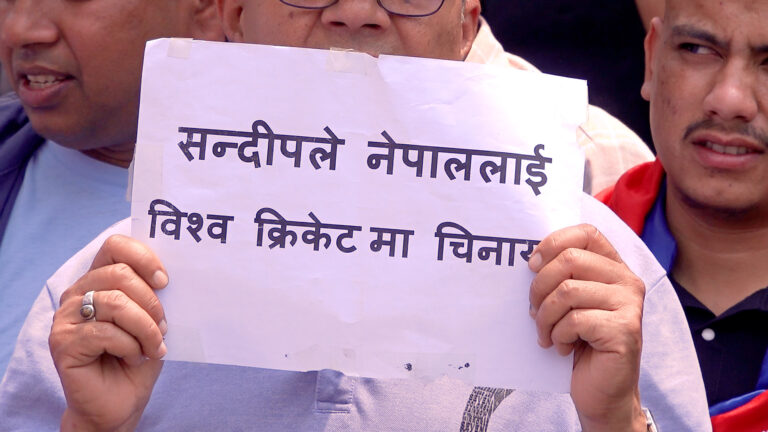 सन्दीपले नेपाललाई
विश्व क्रिकेट मा